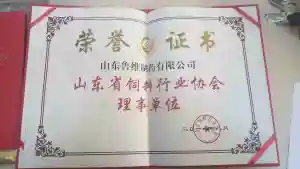 荣誉证书
山东鲁维制药有限公司
山东省饲料行业协会
理事单位